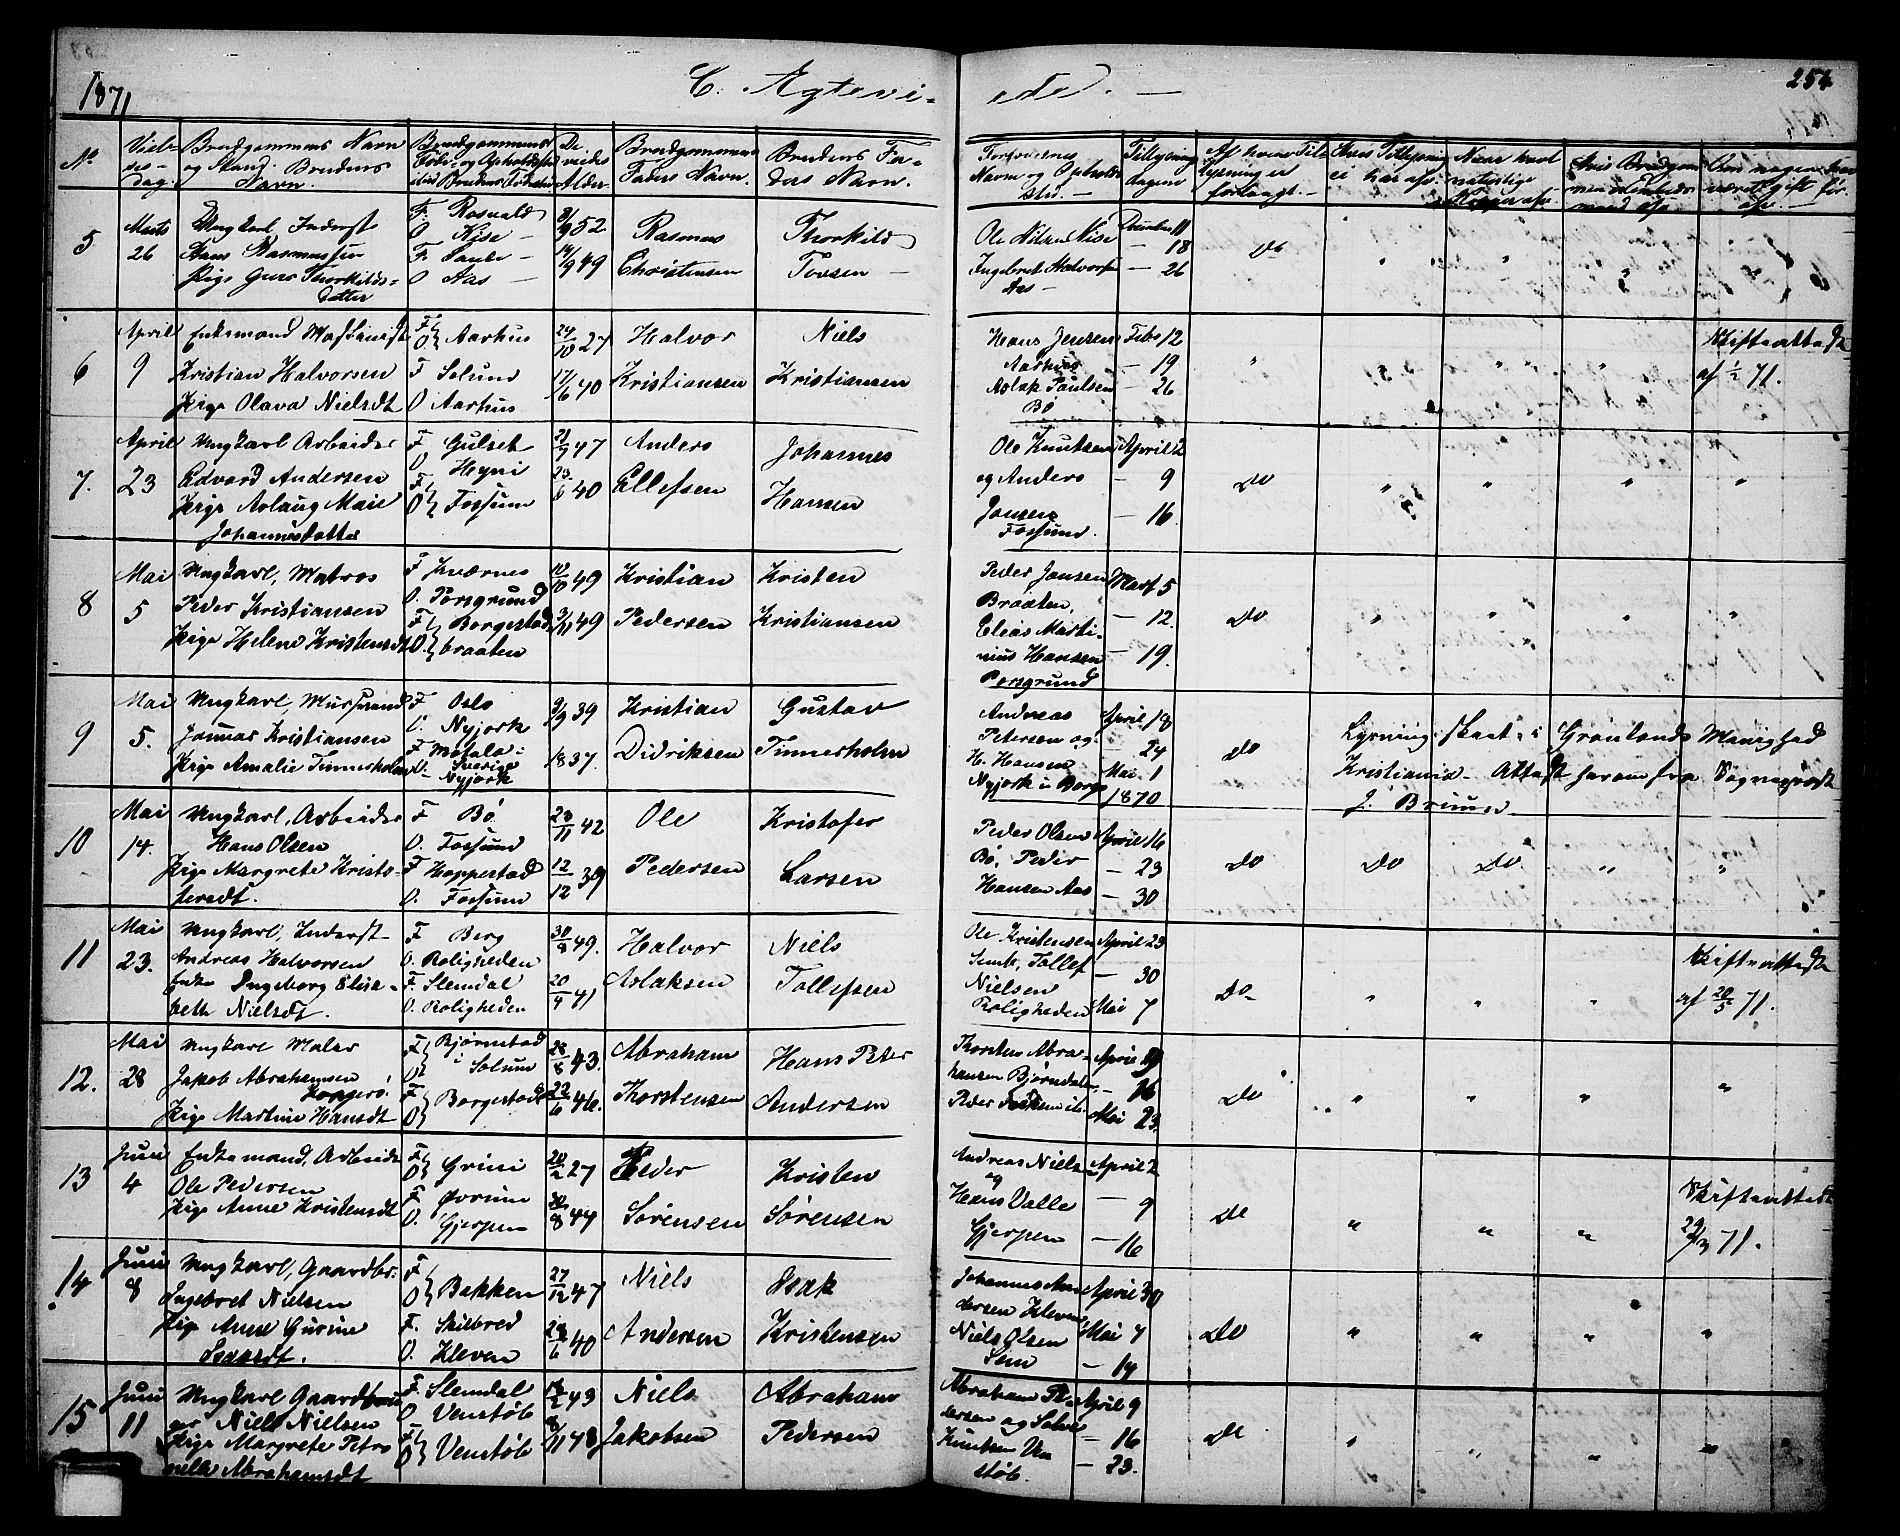 1871
C. Ægtevi-
ede. —
254
No
Viel-
ses-
dag.
Brudgommens Navn
og Stand. Brudens
Navn.
Brudgommens
De
viedes
Alder
Brudgommens
Faders Navn.
Brudens Fa-
ders Navn.
Forlovernes
Navn og Opholds
Tillysnings
dagene
Af hvem Til-
lysning er
forlangt.
5
Marts
26
Ungkarl, Inderst
Hans Rasmussen
Pige Gurs Thorkilds-
datter
F. Rosvald
O. Kise —
F. Saude —
O Aas —
8/9 52
14/9 49
Rasmus
Christensen
Thorkild
Tovsen —
Ole Nilsen Kise
Ingebret Halvors
Aas —
December 11
— 18
— 26
Do
6
April
9
Enkemand
Kristian Halvorsen
Pige Olava Nielsdt
F O Aarhus
F Solund
O Aarhus
24/10 27
17/6 40
Halvor
Kristiansen
Niels
Kristiansen
Hans Jensen
Aarhus
Aslak Paulsen
Bø
Febr 12
— 19
— 26
Skifteattest
af 1/2 71.
7.
April
23
Ungkarl Arbeider
Edvard Andersen
Pige Aslaug Marie
Johannesdatter
F Gulset
O Heyni
F O Fossum
21/9 47
23/6 40
Anders
Ellefsen
Johannes
Hansen
Ole Knutsen
og Anders
Jonsen
Fossum.
April 2
— 9
— 16
Do
8
Mai
5
Ungkarl, Matros
Peder Kristiansen
Pige Helene Kristensdt
F Kværnes
O. Porsgrund
F O. Borgestad
braaten
10/10 49
3/11 49
Kristian
Pedersen
Kristen
Kristiansen
Peder Jonsen
Braaten,
Elias Marti-
nius Hansen
Porsgrund
Marts 5
— 12.
— 19.
Do
9
Mai
5.
Ungkarl,
Jonnas Kristiansen
Pige Amalie Tinnerholm
F Oslo
O Nyjork
F Motala
Sverige
O Nyjork
9/9 39
1837.
Kristian
Didriksen
Gustav
Tinnerholm
Andreas
Petersen og
H. Hansen
Nyjork
April 18
— 24
Mai 1
1870
Do
Lysning skeet i Grønlands Menighed
Kristiania - Attest herom fra Sognepræst
J. Bruun
10
Mai
14.
Ungkarl, Arbeider
Hans Olsen
Pige Margrete Kristo-
feredt.
F Bø
O. Fossum
F Hoppestad
O. Fossum
23/11 42
12/12 39
Ole
Pedersen
Kristofer
Larsen
Peder Olsen
Bø, Peder
Hansen Aas
April 16
— 23
— 30
Do
Do
Do
11
Mai
23.
Ungkarl, Inderst
Andreas Halvorsen
Enke Ingeborg Elisa-
beth Nielsdt.
F Berg
O. Roligheden
F. Slemdal
O. Roligheden
30/8 49.
20/4 41
Halvor
Aslaksen
Niels
Tollefsen
Ole Kristensen
Tollef
Nielsen
Roligheden
April 23
— 30
Mai 7
Do-
Skifteattest
af 20/5 71.
12.
Mai
28
Ungkarl Maler
Jakob Abrahamsen
Pige Martine Hansdt
F O Bjørnstad
i Solum
F O Borgestad
28/8 43.
22/6 46.
Abraham
Thorstensen
Hans Peter
Andersen
Thorsten Abra-
hamsen Bjørndalen
Peder
April 9
— 16
Mai 23.
Do
13
Juni
4
Enkemand, Arbeider
Ole Pedersen
Pige Anne Kristensdt
F O Grini
F Øvrum
O. Gjerpen
20/2 27
30/8 44
Peder
Sørensen
Kristen
Sørensen
Andreas Nielsen
og
Hans Valle
Gjerpen
April 2
— 9
— 16
Do
Skifteattest
29/3 71.
14
Juni
8
Ungkarl, Gaardbr.
Ingebret Nielsen
Pige Anne Gurine
Isaksdt.
F O Bakken
F. Skilbred
O. Kleven
27/12 47
28/6 40
Niels
Andersen
Isak
Kristensen
Johannes An-
dersen Kleven
Niels Olsen
Sem
April 30
Mai 7
— 14
Do
15
Juni
11
Ungkarl Gaardbrui-
er Niels Nielsen
Pige Margrete Petro
nelle Abrahamsdt
F. Slemdal
O. Venstøb
F O Venstøb
43
8/11 48
Niels
Jakobsen
Abraham
Pedersen
Abraham Pe-
dersen og Salve
Knutsen Ven
støb.
April 9
— 16
— 23.
Do